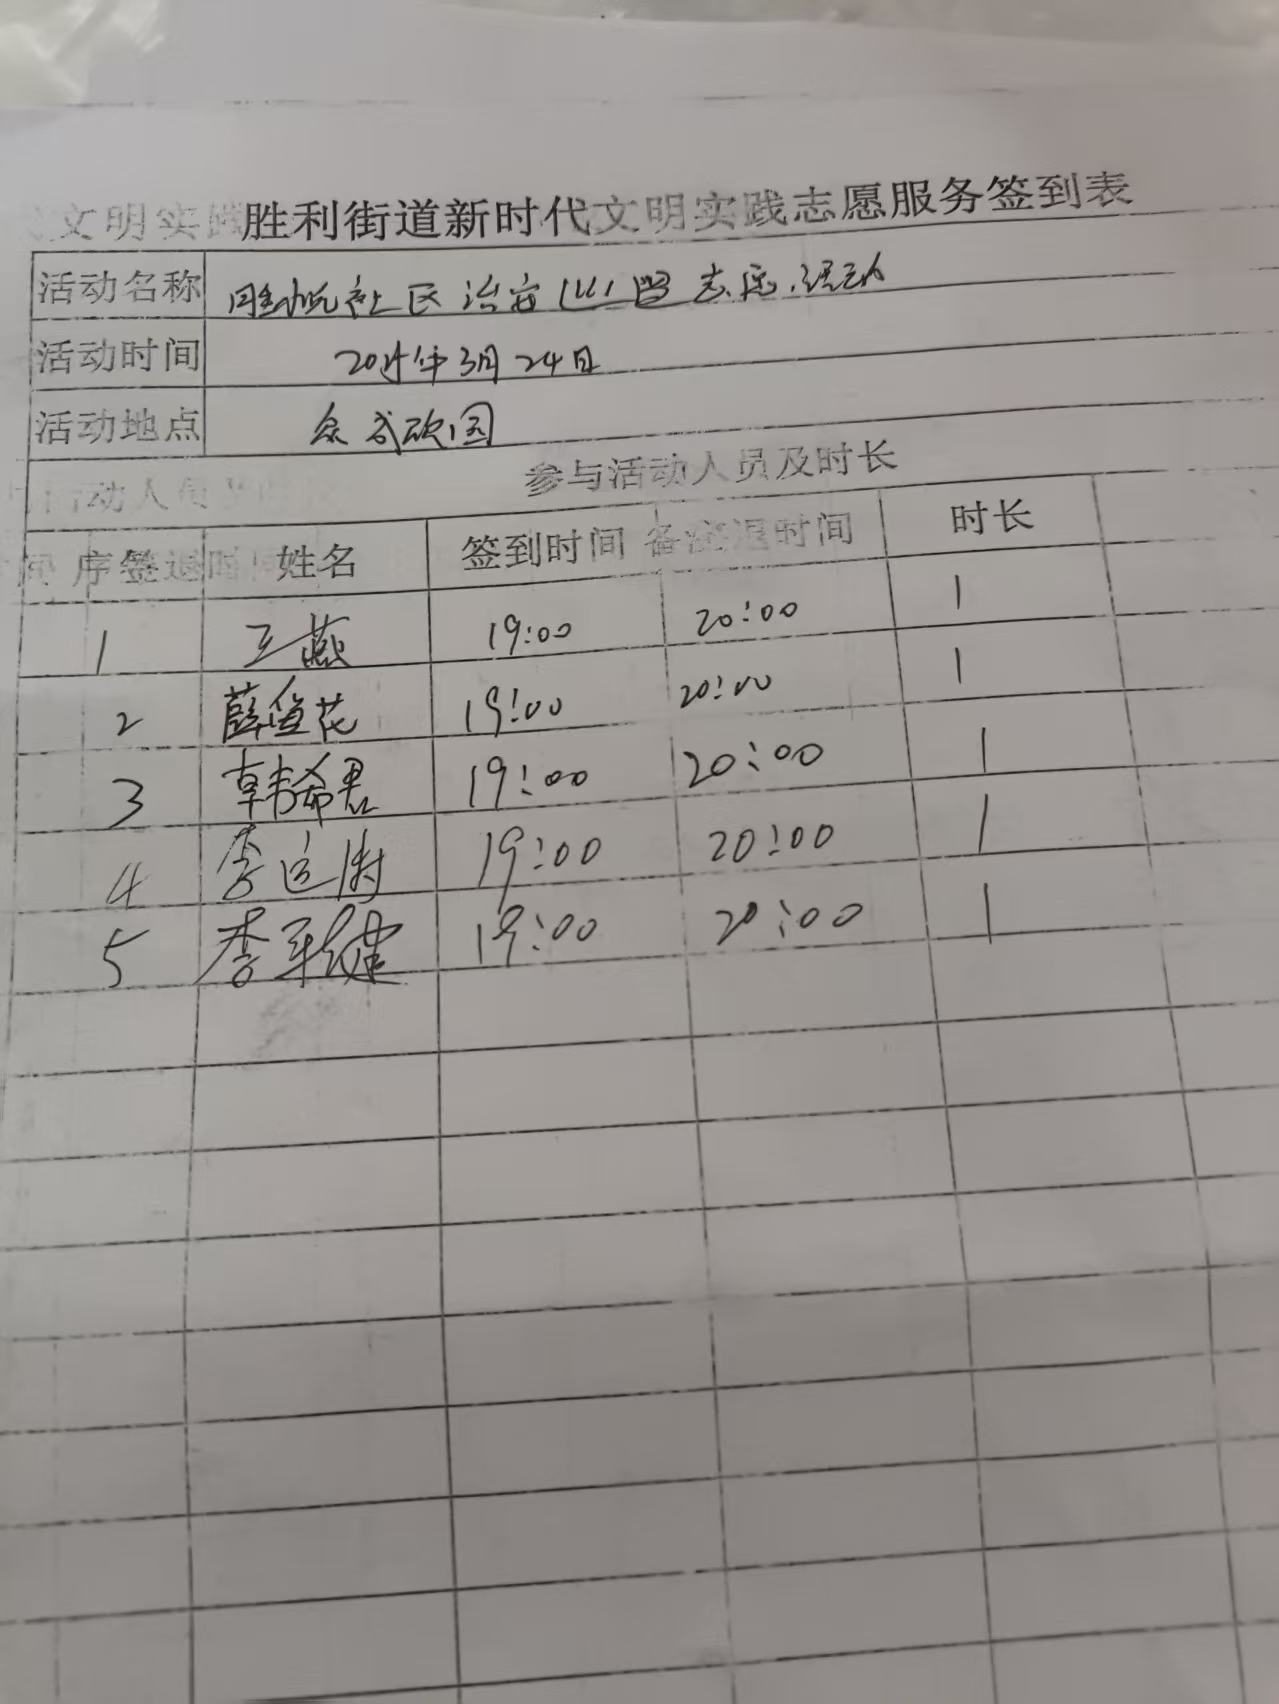 胜利街道新时代文明实践志愿服务签到表
活动名称 社区治安巡逻志愿活动
活动时间 年3月24日
活动地点 园
参与活动人员及时长
序 签退时间 姓名 签到时间 备注 退时间 时长
1 王燕 19:00 20:00 1
2 薛鱼花 19:00 20:00 1
3 韩希君 19:00 20:00 1
4 李运 19:00 20:00 1
5 李军健 19:00 20:00 1